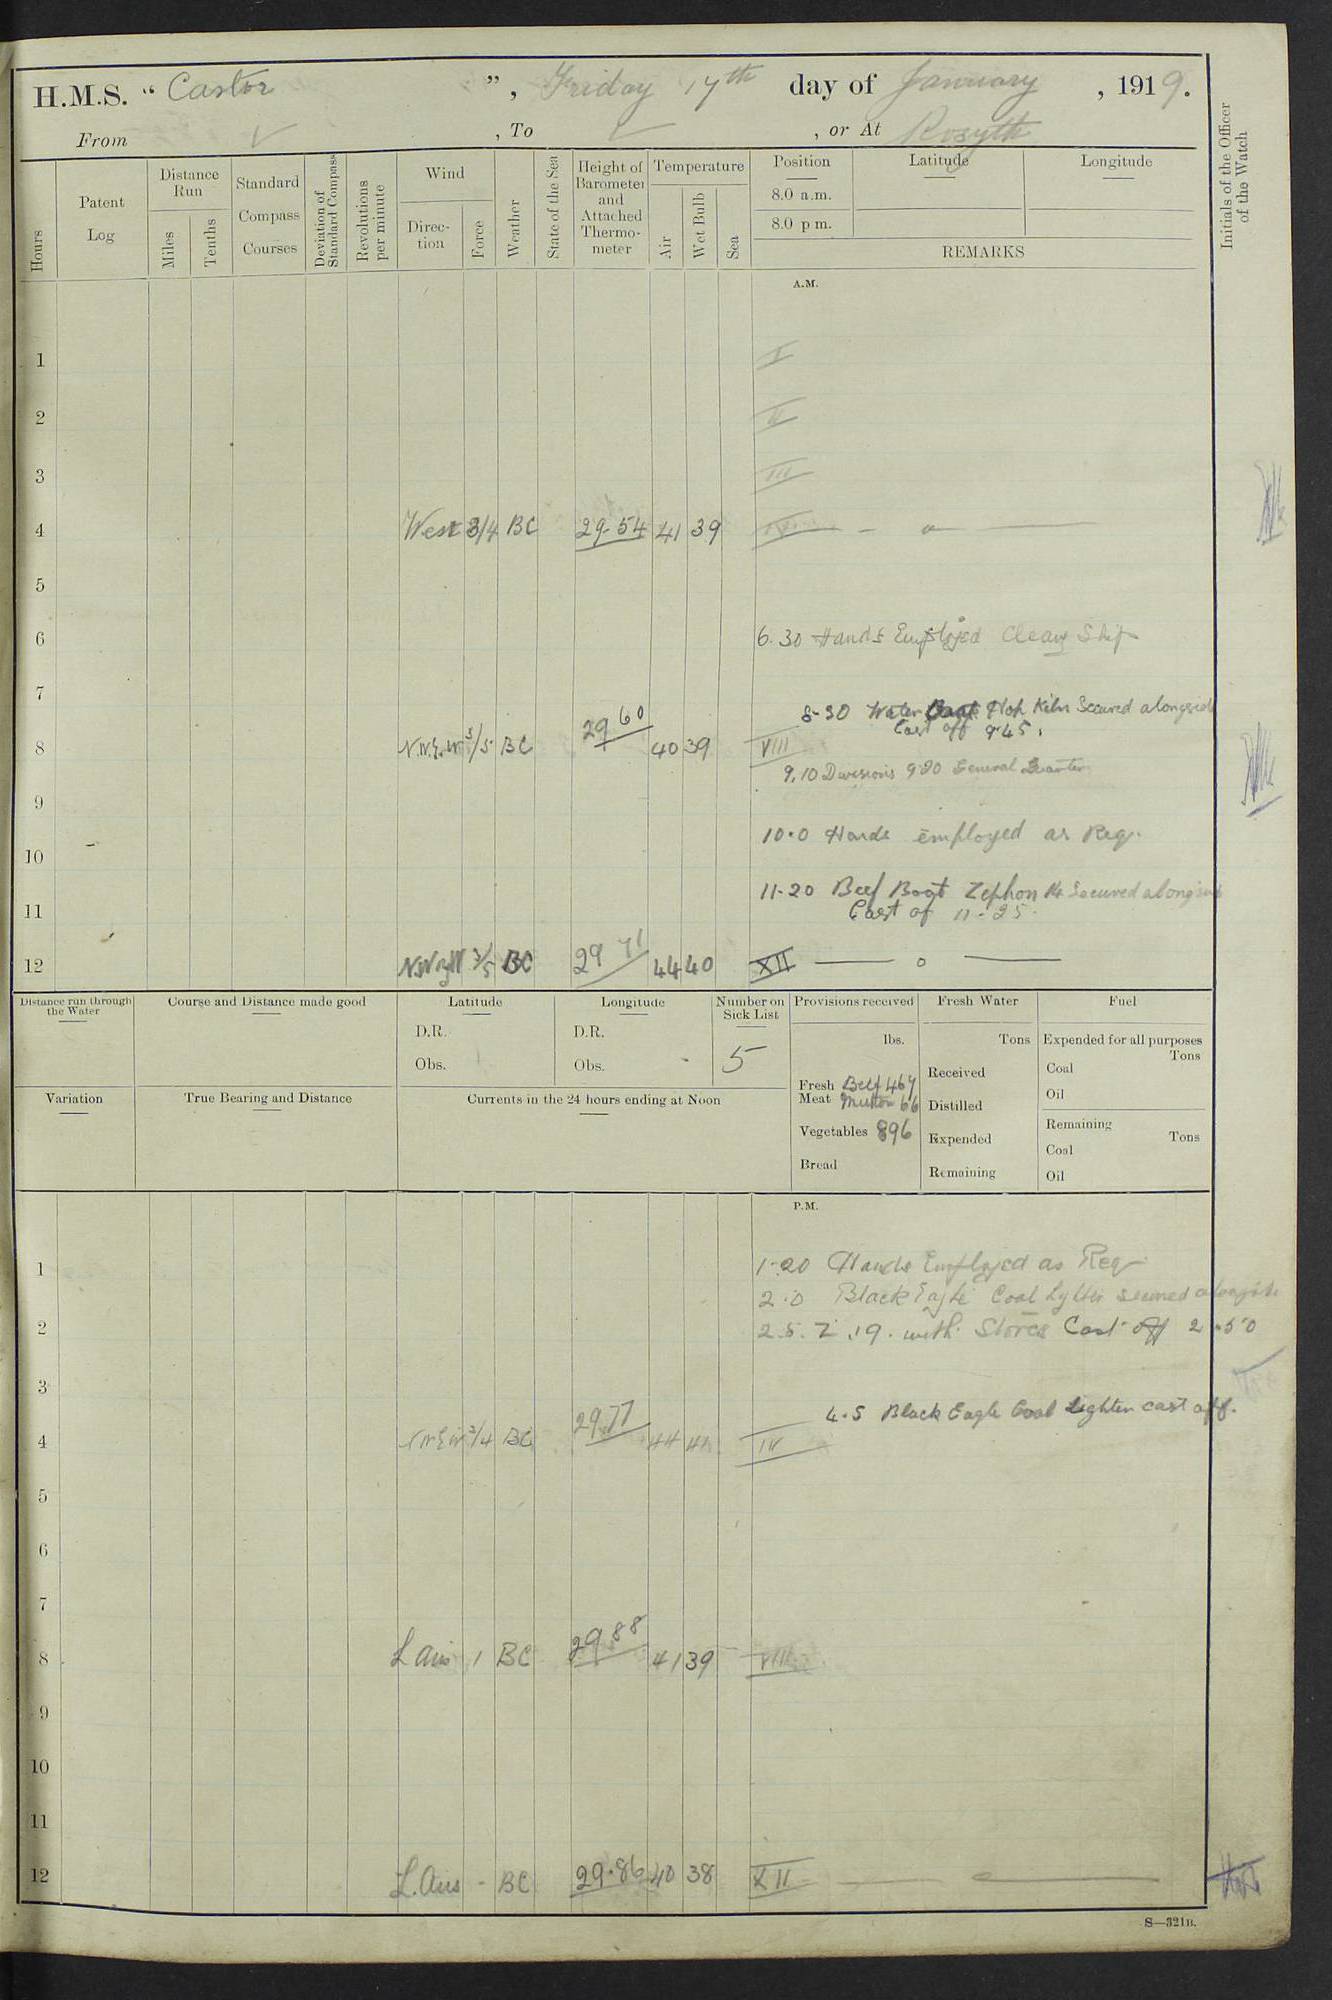 H.M.S. “ Castor ”, Friday 17th day of January, 1919.
From , To , or At Rosyth
Hours
Patent Log
Distance Run
Miles
Tenths
Standard Compass Courses
Deviation of Standard Compass
Revolutions per minute
Wind
Direction
Force
Weather
State of the Sea
Height of Barometer and Attached Thermometer
Temperature
Air
Wet Bulb
Sea
Position Latitude Longitude
8.0 a.m.
8.0 p m.
REMARKS
Initials of the Officer of the Watch
A.M.
1 I
2 II
3 III
4 West 3/4 BC 29.54 41 39 IV
5
6 6.30 Hands Employed Clean Ship
7
8-30 Water Boat Hop Kiln Secured alongside
Cast off 9.45.
8 BC 29 60 40 39 VIII
9.10 Divisions 9.30 General Quarters
9
10.0 Hands employed as Req.
10
11-20 Beef Boat Zephon Secured alongside
Cast of 11-25.
11
12 3/5 BC 29 71 44 40 XII
Distance run through the Water
Course and Distance made good
Latitude
D.R.
Obs.
Longitude
D.R.
Obs.
Number on Sick List
5
Provisions received
lbs.
Fresh Meat Beef 467
Mutton 66
Vegetables 896
Bread
Fresh Water
Tons
Received
Distilled
Expended
Remaining
Fuel
Expended for all purposes
Tons
Coal
Oil
Remaining
Tons
Coal
Oil
Variation
True Bearing and Distance
Currents in the 24 hours ending at Noon
P.M.
1 1.20 Hands Employed as Req.
2.0 Black Eagle Coal Lighter secured alongside
2 2.5. Z.19. with Stores Cast off 2.50
3
4.5 Black Eagle Coal Lighter cast off.
4 3/4 BC 29 77 44 41 IV
5
6
7
8 L airs 1 BC 29 88 41 39 VIII
9
10
11
12 L. Airs - BC 29.86 40 38 XII
S—321B.